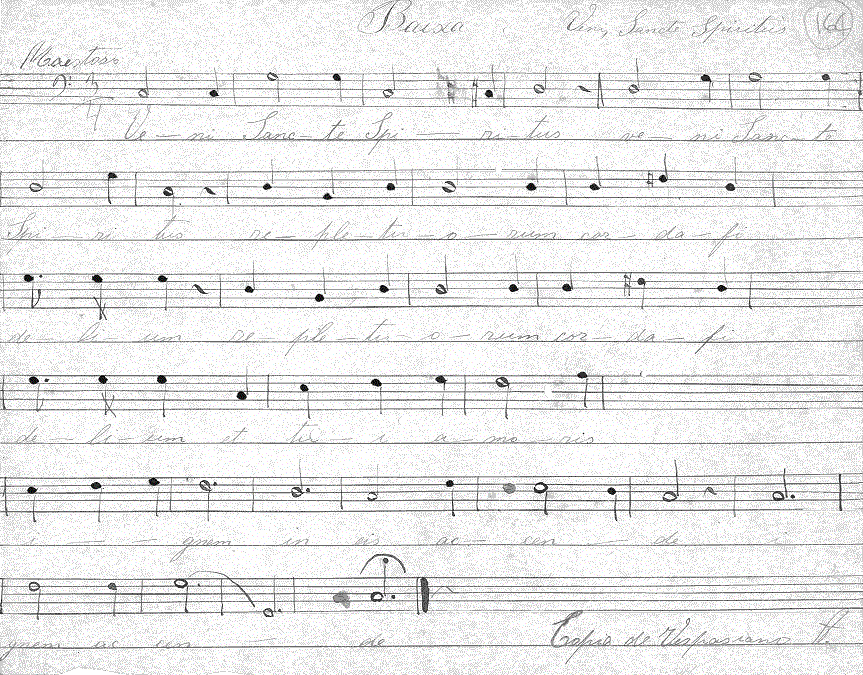 Baixa Veni Sancte Spiritus 164
Maestoso
3 4
Ve - ni Sanc - te Spi - ri - tus ve - ni Sanc - te
Spi - ri tus re - ple - tu - o - rum cor - da - fi
de - li - um re - ple - tu - o - rum cor - da - fi
de - li - um et tu - i a - mo - ris
i - - gnem in eis ac - cen - de i
gnem ac cen - de Copia de Vespasiano